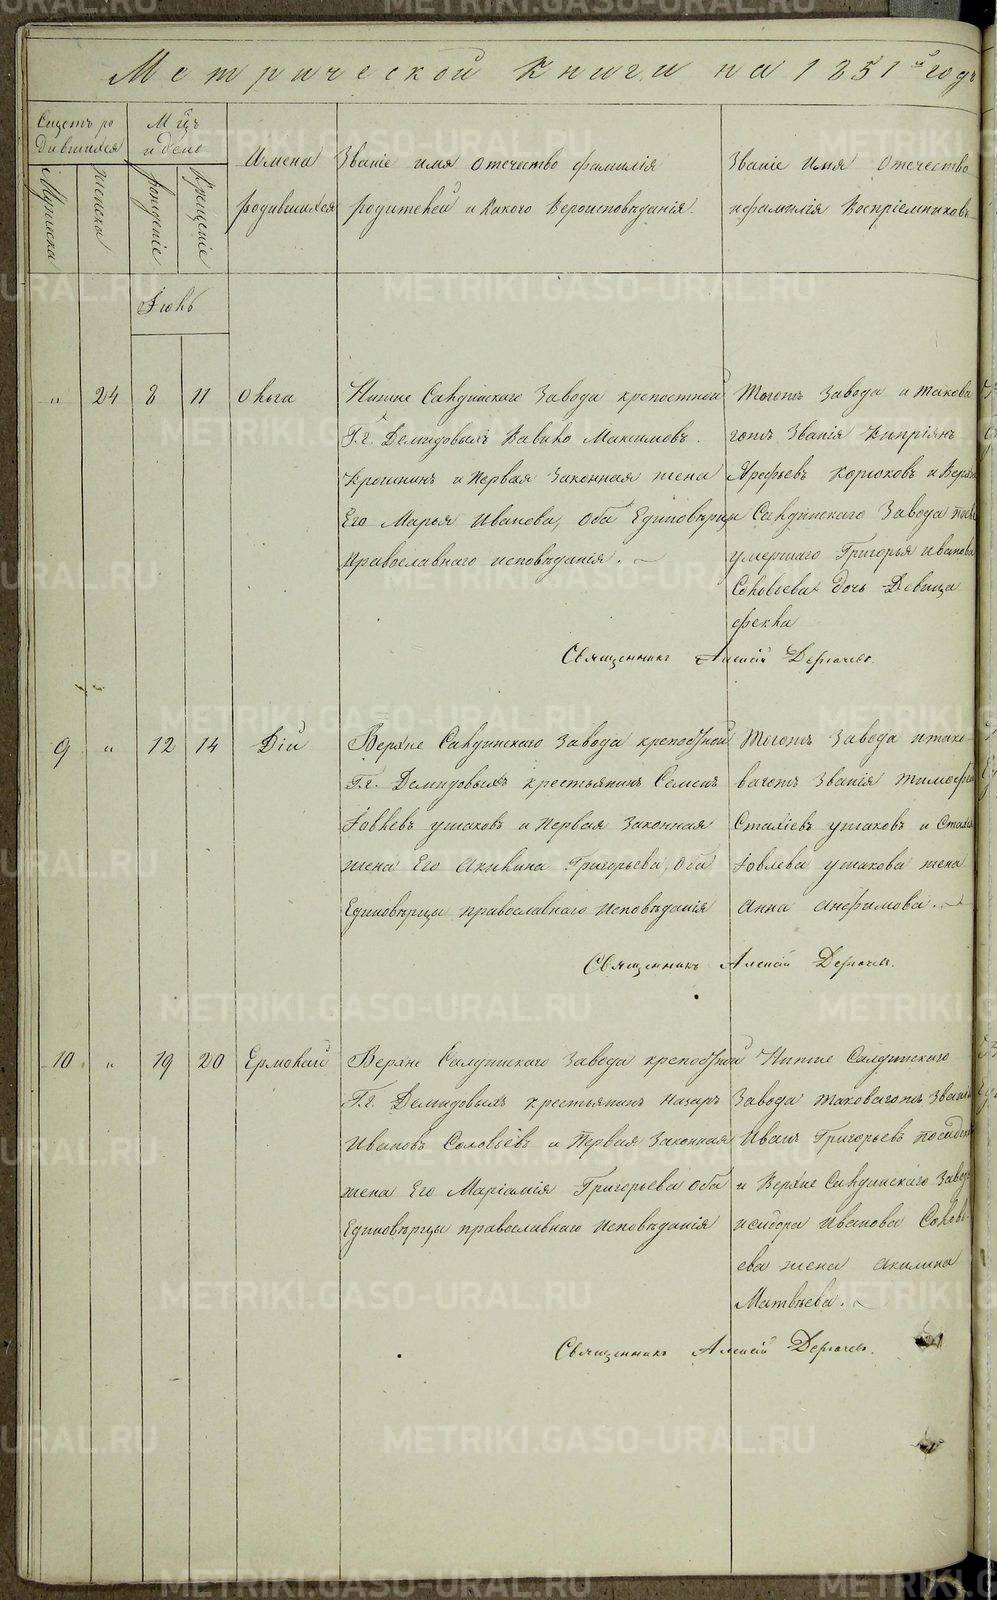 Метрической книги на 1851й годъ
Счетъ ро
дившихся
Мужеска
женска
Мцъ
и день
рожденіе
крещеніе
Имена
родившихся
Званіе имя отечество фамилія
родителей и какого вероисповѣданія.
Званіе имя отечество
и фамилія воспріемниковъ
Іюнь
" 24 8 11 Ольга
Нижне Салдинскаго Завода крепостной
Г.г. Демидовыхъ Вавило Максимовъ
и первая Законная жена
Его Марья Иванова, оба Единовѣрцы
православнаго исповѣданія.
Тогожъ Завода и такова
гожъ Званія Кипріянъ
Арефьевъ Корюковъ и Верхне
Салдинскаго Завода
умершаго Григорья Иванова
Соловьева дочь Девица
Фекла
Священникъ Алексій Дерючевъ.
9 " 12 14 Дій
Верхне Салдинскаго Завода крепостной
Г.г. Демидовыхъ крестьянинъ Семенъ
Іовлевъ ушаковъ и первая Законная
жена Его Акилина Григорьева, оба
Единовѣрцы православнаго исповѣданія
Тогожъ Завода и тако-
вагожъ Званія Тимофей
ушаковъ и
Іовлева ушакова жена
Анна Анфимова.
Священникъ Алексій Дерючевъ.
10 " 19 20 Ермолай
Верхне Салдинскаго Завода крепостной
Г.г. Демидовыхъ крестьянинъ Назаръ
Ивановъ Соловьёвъ и Первая Законная
жена Его Маріамія Григорьева оба
Единовѣрцы православнаго исповѣданія
Нижне Салдинскаго
Завода таковагожъ Званія
Иванъ Григорьевъ
и Верхне Салдинскаго Завода
исидора Иванова Соловь-
ева жена акилина
Матвѣева.
Священникъ Алексій Дерючевъ.
METRIKI.GASO-URAL.RU